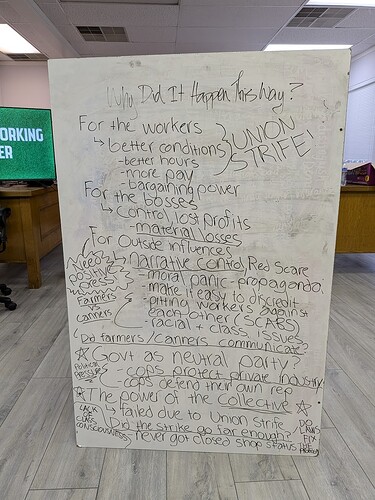 ORKING
ER
Why Did It Happen This Way?
For the workers
↳ better conditions
- better hours
- more pay
- bargaining power
} UNION
STRIFE!
For the bosses
↳ Control, lost profits
- material losses
For Outside influences
↳ narrative control, Red Scare
- moral panic - propaganda
- make it easy to discredit
- pitting workers against
each other (SCABS)
- racial + class issues?
Need
positive
press
Farmers
canners
Did farmers/canners communicate?
☆ Govt as neutral party?
Political
pressure
- cops protect private industry
- cops defend their own rep
☆ The power of the Collective ☆
↳ failed due to Union Strife
LACK
OF
CLASS
CONSCIOUSNESS
Did the strike go far enough?
never got closed shop status
DO
LAWS
FIX
THE